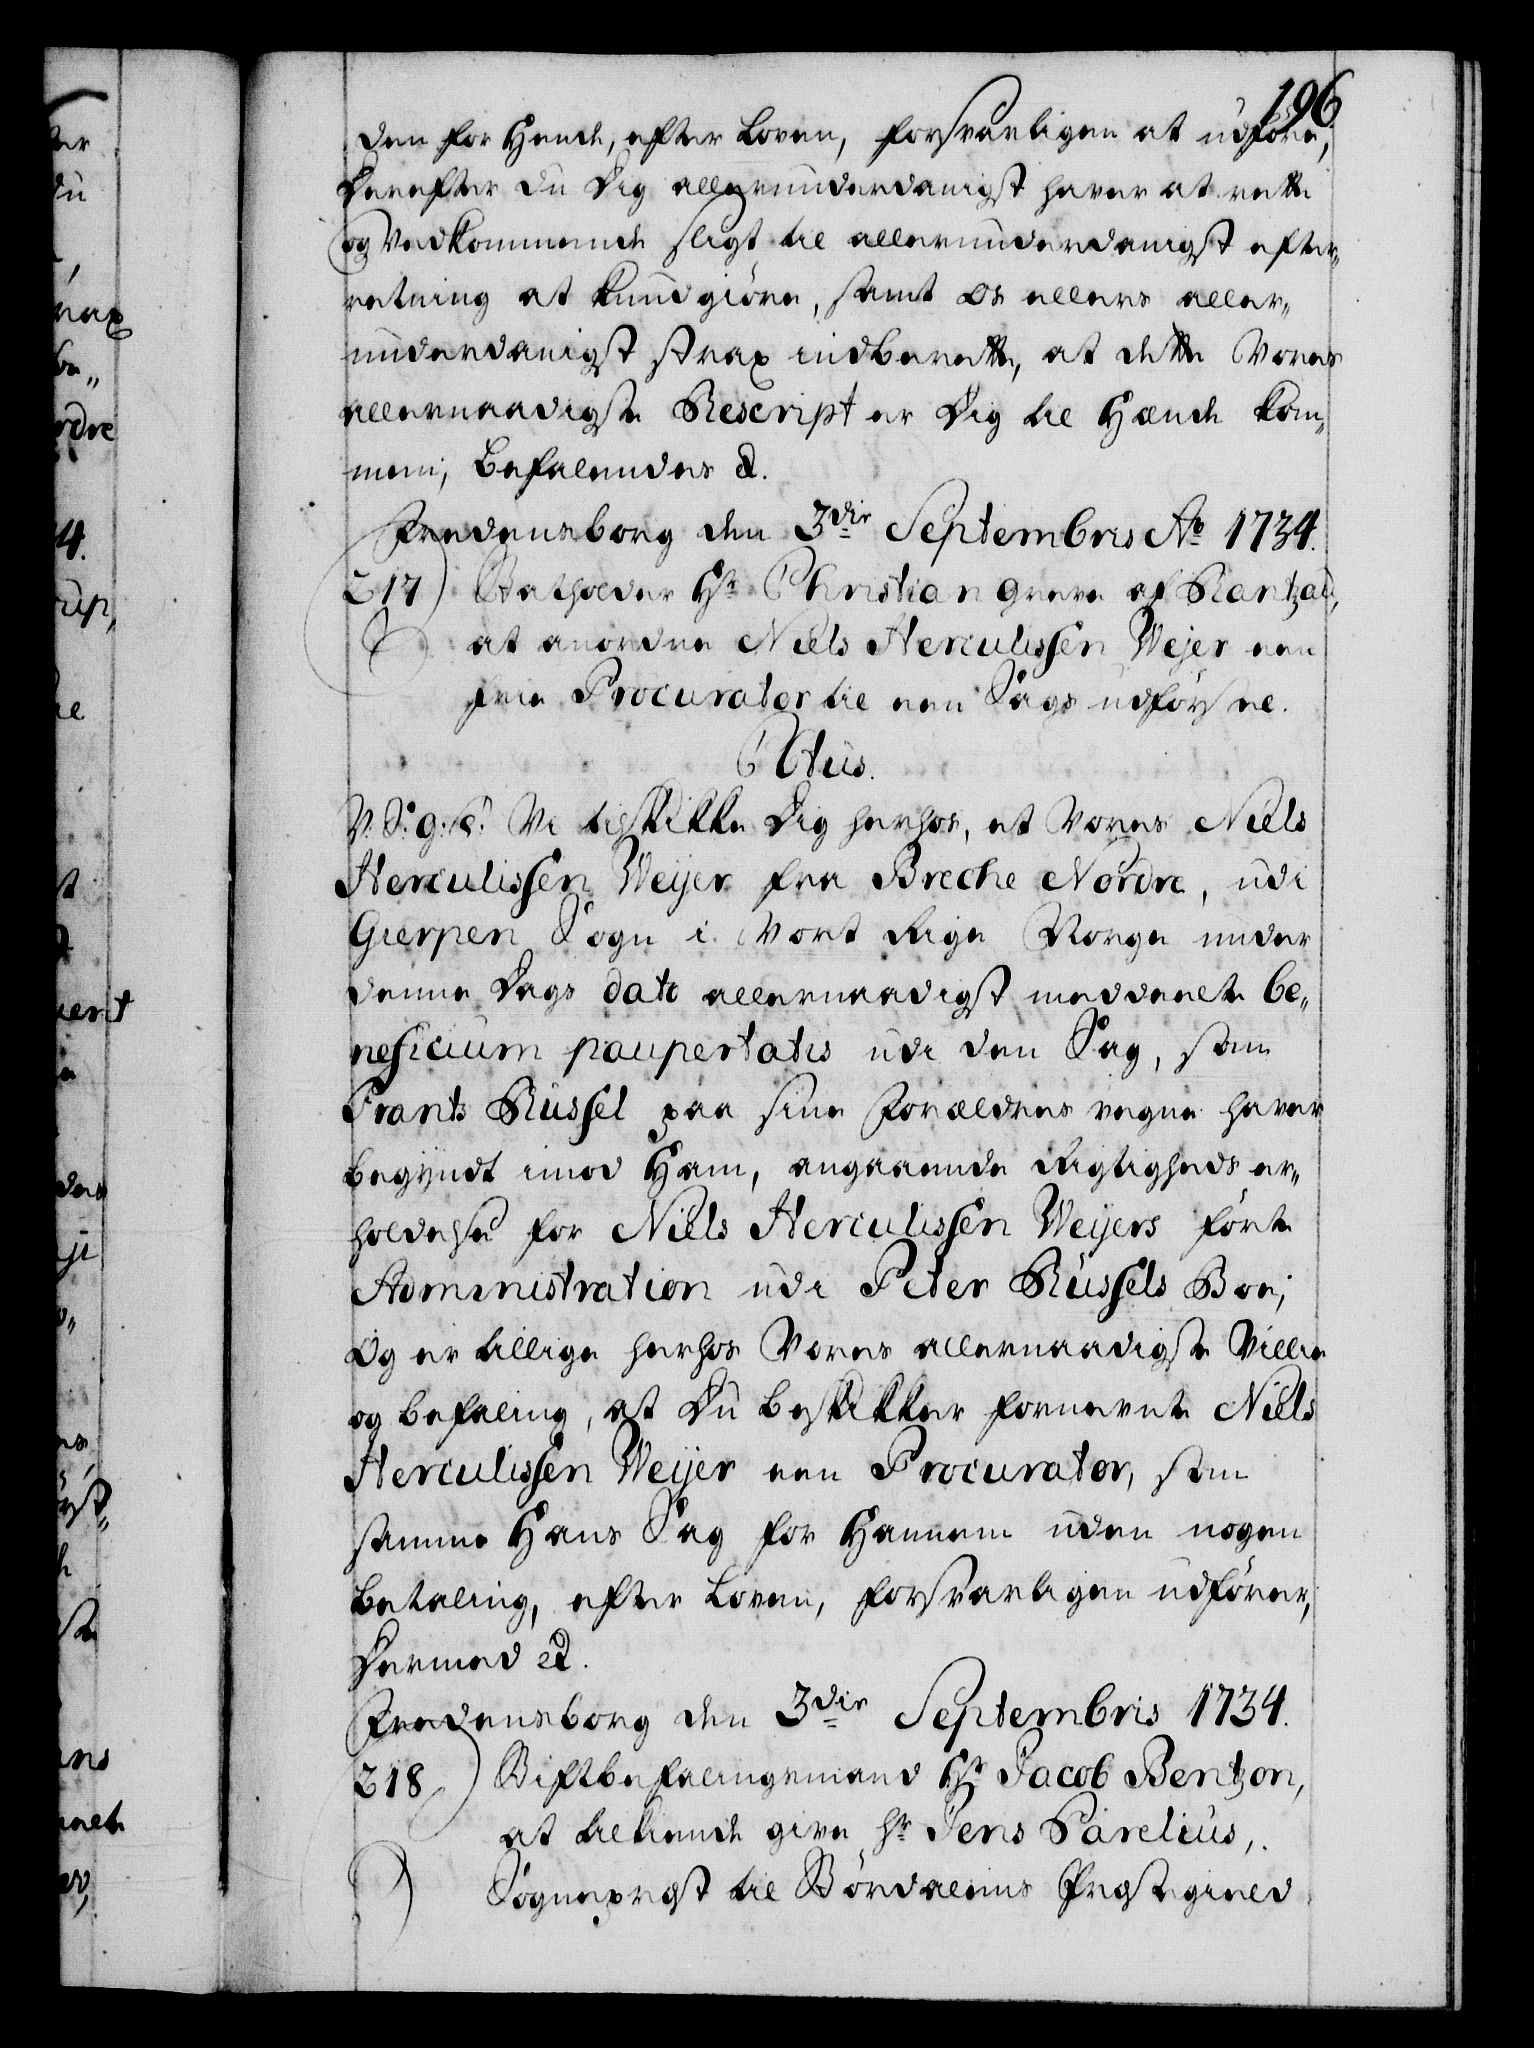 196
den for Hende, efter Loven, forsvarligen at udføre,
Derefter du Dig allerunderdanigst haver at rette
og Vedkommende sligt til allerunderdanigst efter„
retning at kundgiøre, samt os ellers aller„
underdanigst strax indberette, at dette Vores
allernaadigste Rescript er Dig til Hænde kom„
men; Befalendes &.
Fredensborg den 3die Septembris Ao 1734.
217) Statholder Hr Christian Greve af Rantzau,
at anordne Niels Herculissen Weyer een
frie Procurator til een Sags udførsel.
C 6tus.
V: S: g: T: Vi tilskikke Dig herhos, et Vores Niels
Herculissen Weijer fra Breche Nordre, udi
Gierpen Sogn i Vort Rige Norge under
denne Dags dato allernaadigst meddeelte be„
neficium paupertatis udi den Sag, som
Frants Rüssel paa sine Forældres vegne haver
begyndt imod Ham, angaaende Rigtigheds er„
holdelse for Niels Herculissen Weijers førte
Administration udi Peter Rüssels Boe;
Og er tillige herhos Vores allernaadigste Villie
og befaling, at Du beskikker fornevnte Niels
Herculissen Weijer een Procurator, som
samme Hans Sag for Hannem uden nogen
betaling, efter Loven, forsvarligen udfører,
Dermed &.
Fredensborg den 3die Septembris 1734.
218) Stiftbefalingsmand Hr Jacob Bentzon,
at tilkiende give Hr Jens Parelius,
Sogneprest til Størdalens Prestegield